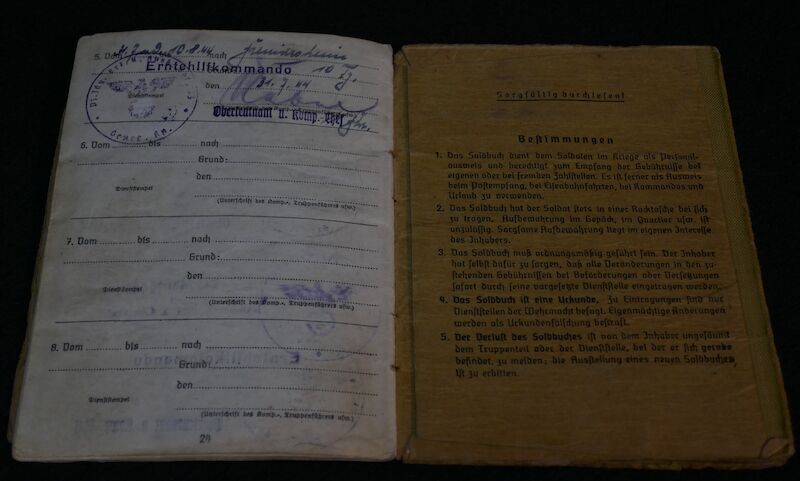 5. Vom 10.8.44 nach
Erntehilfkommando
den 31.7.44
Dienststempel
Oberleutnant u. Komp. Chef
6. Vom bis nach
Grund:
den
Dienststempel
(Unterschrift des Komp.-, Truppenführers usw.)
7. Vom bis nach
Grund:
den
Dienststempel
(Unterschrift des Komp.-, Truppenführers usw.)
8. Vom bis nach
Grund:
den
Dienststempel
(Unterschrift des Komp.-, Truppenführers usw.)
24
Sorgfältig durchlesen!
Bestimmungen
1. Das Soldbuch dient dem Soldaten im Kriege als Personal-
ausweis und berechtigt zum Empfang der Gebührnisse bei
eigenen oder bei fremden Zahlstellen. Es ist ferner als Ausweis
beim Postempfang, bei Eisenbahnfahrten, bei Kommandos und
Urlaub zu verwenden.
2. Das Soldbuch hat der Soldat stets in einer Rocktasche bei sich
zu tragen. Aufbewahrung im Gepäck, im Quartier usw. ist
unzulässig. Sorgsame Aufbewahrung liegt im eigenen Interesse
des Inhabers.
3. Das Soldbuch muß ordnungsmäßig geführt sein. Der Inhaber
hat selbst dafür zu sorgen, daß alle Veränderungen in den zu-
stehenden Gebührnissen bei Beförderungen oder Versetzungen
sofort durch seine vorgesetzte Dienststelle eingetragen werden.
4. Das Soldbuch ist eine Urkunde. Zu Eintragungen sind nur
Dienststellen der Wehrmacht befugt. Eigenmächtige Änderungen
werden als Urkundenfälschung bestraft.
5. Der Verlust des Soldbuches ist von dem Inhaber ungesäumt
dem Truppenteil oder der Dienststelle, bei der er sich gerade
befindet, zu melden; die Ausstellung eines neuen Soldbuches
ist zu erbitten.